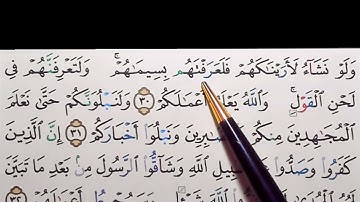 وَلَوْ نَشَآءُ لَأَرَيْنَٰكَهُمْ فَلَعَرَفْتَهُم بِسِيمَٰهُمْ ۚ وَلَتَعْرِفَنَّهُمْ فِى
لَحْنِ ٱلْقَوْلِ ۚ وَٱللَّهُ يَعْلَمُ أَعْمَٰلَكُمْ ٣٠ وَلَنَبْلُوَنَّكُمْ حَتَّىٰ نَعْلَمَ
ٱلْمُجَٰهِدِينَ مِنكُمْ وَٱلصَّٰبِرِينَ وَنَبْلُوَا۟ أَخْبَارَكُمْ ٣١ إِنَّ ٱلَّذِينَ
كَفَرُوا۟ وَصَدُّوا۟ عَن سَبِيلِ ٱللَّهِ وَشَآقُّوا۟ ٱلرَّسُولَ مِنۢ بَعْدِ مَا تَبَيَّنَ